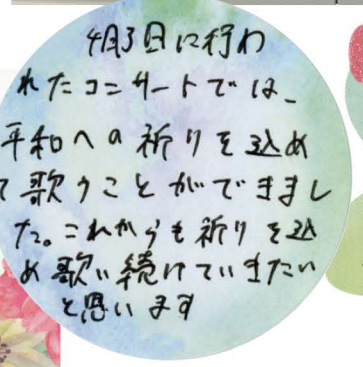 4月3日に行わ
れたコンサートでは、
平和への祈りを込め
て歌うことができまし
た。これからも祈りを込
め歌い続けていきたい
と思います